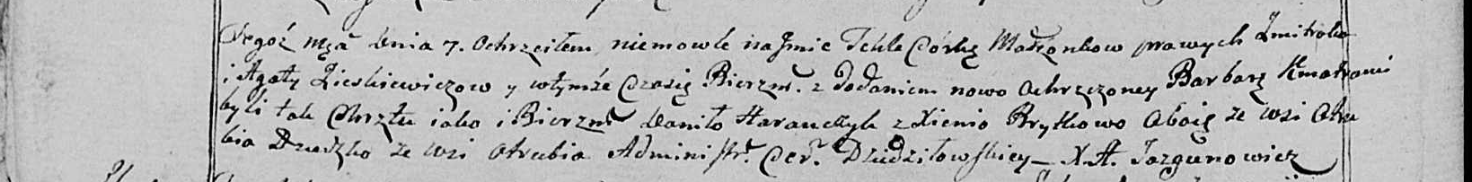 Tegoż mca dnia 7. Ochrzciłem niemowle na Jmie Tekle Córkę Małżonkow prawych Dmitroka
i Agaty Zieskiewiczow y wtymże Czasię Bierzm. z Dodaniem nowo Ochrzczoney Barbarę Kmotrami
byli tak Chrztu iako i Bierzm. Daniło Harauczyk z Xienio Brytkowo Aboię ze wsi Otru
bia Dziedzko ze wsi Otrubia Administr. Cer. Dziedziłowskiey – X. A. Jazgunowicz